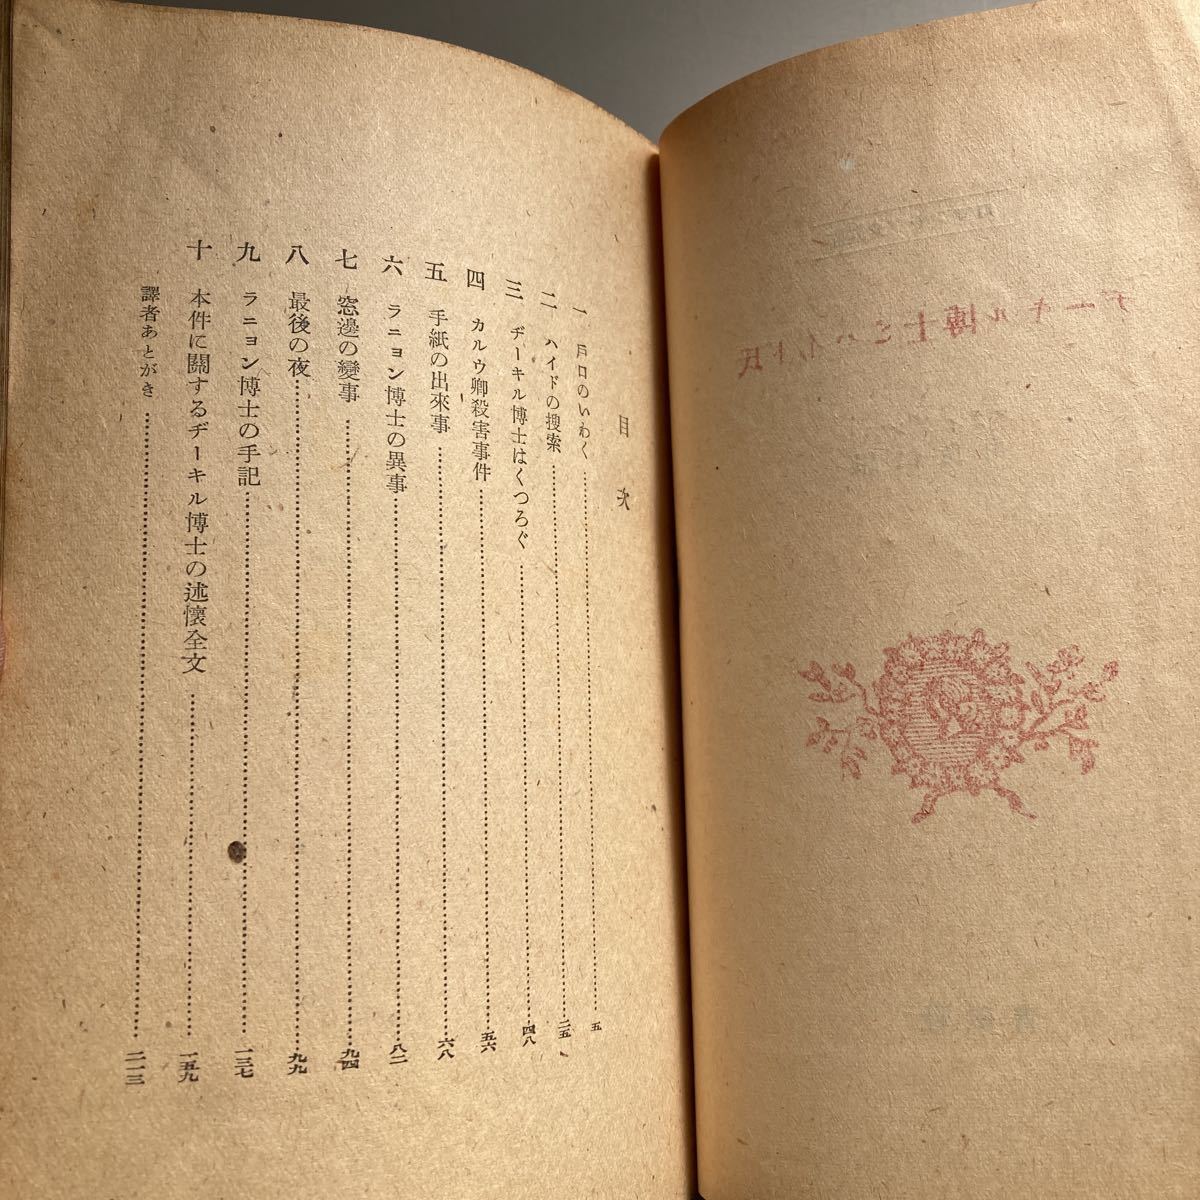 ヂーキル博士とハイド氏
目次
一 戸口のいわく 五
二 ハイドの搜索 二五
三 ヂーキル博士はくつろぐ 四八
四 カルウ卿殺害事件 五六
五 手紙の出來事 六八
六 ラニョン博士の異事 八二
七 窓邊の變事 九四
八 最後の夜 九九
九 ラニョン博士の手記 一三七
十 本件に關するヂーキル博士の述懷全文 一五九
譯者あとがき 二一三